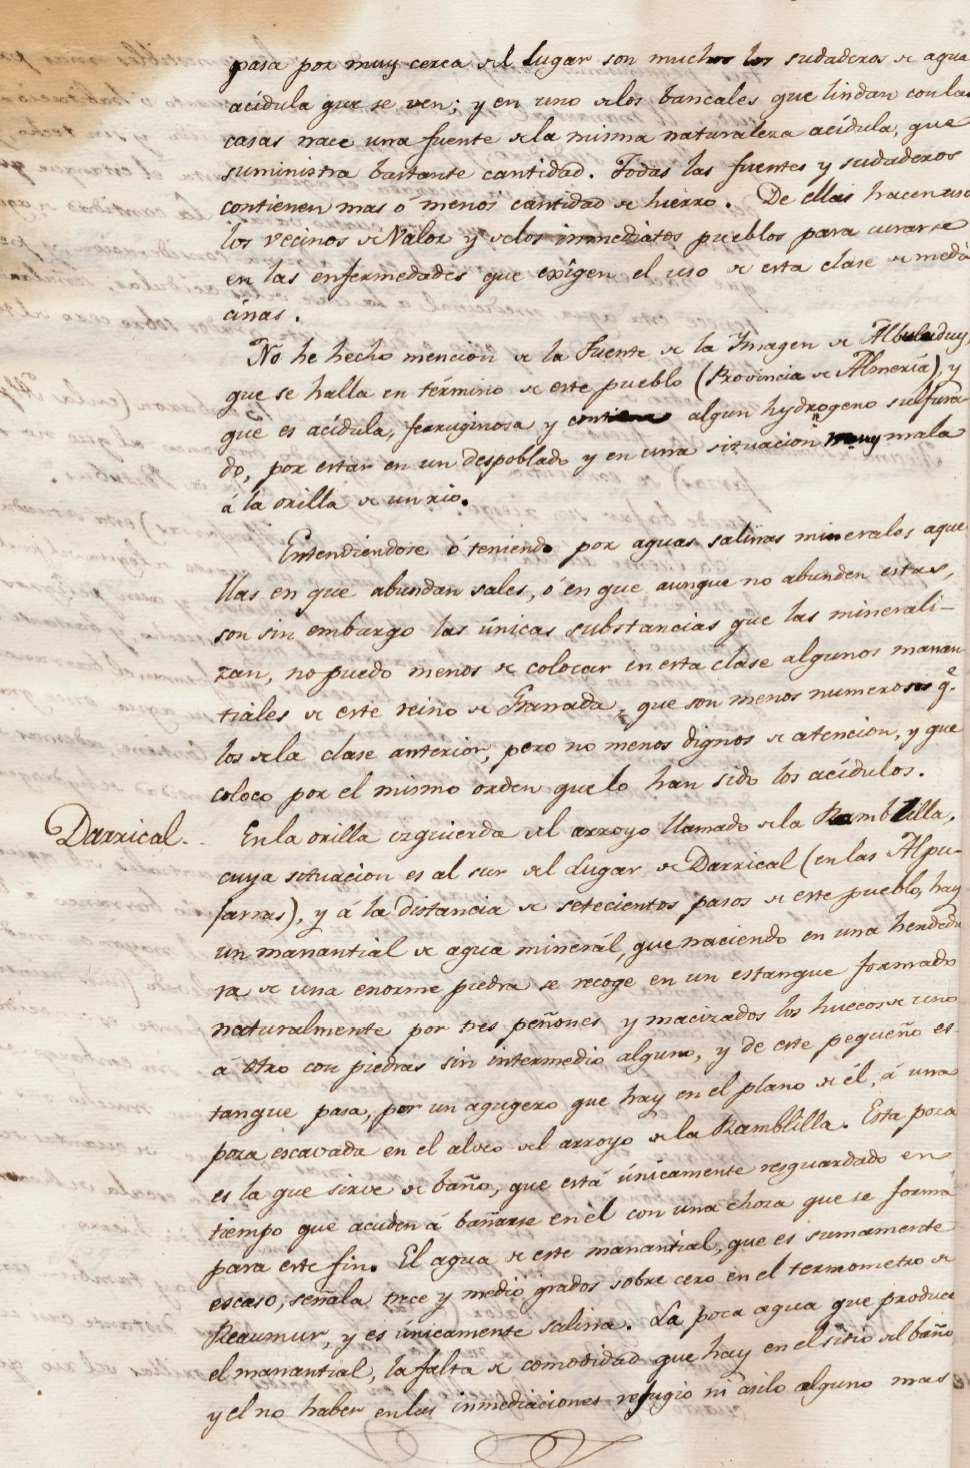 pasa por muy cerca del Lugar son muchos los sudaderos de agua
acídula que se ven; y en uno de los bancales que lindan con las
casas nace una fuente de la misma naturaleza acídula, que
suministra bastante cantidad. Todas las fuentes y sudaderos
contienen mas ó menos cantidad de hierro. De ellas hacen uso
los vecinos de Valor y de los inmediatos pueblos para curarse
en las enfermedades que exîgen el uso de esta clase de medi
cinas.
No he hecho mencion de la Fuente de la Imagen de Albuladuy,
que se halla en término de este pueblo (Provincia de Almería), y
que es acídula, ferruginosa y contiene algun hydrogeno sulfura
do, por estar en un despoblado y en una situacion muy mala
á la orilla de un rio.
Entendiendose ó teniendo por aguas salinas minerales aque
llas en que abundan sales, ó en que aunque no abunden estas,
son sin embargo las únicas substancias que las minerali-
zan, no puedo menos de colocar in esta clase algunos manan
tiales de este reino de Granada, que son menos numerosos q.e
los de la clase anterior, pero no menos dignos de atencion, y que
coloco por el mismo orden que lo han sido los acídulos.
Darrical. En la orilla izquierda del arroyo llamado de la Ramblilla,
cuya situacion es al sur del Lugar de Darrical (en las Alpu-
jarras), y á la distancia de setecientos pasos de este pueblo, hay
un manantial de agua minerál, que naciendo en una hendedu
ra de una enorme piedra se recoge en un estanque formado
naturalmente por tres peñones y macizados los huecos de uno
á otro con piedras sin intermedio alguno, y de este pequeño es
tanque pasa, por un agugero que hay en el plano de él, á una
poza escavada en el alveo del arroyo de la Ramblilla. Esta poza
es la que sirve de baño, que está únicamente resguardado en
tiempo que acuden á bañarse en él con una choza que se forma
para este fin. El agua de este manantial, que es sumamente
escaso, señala trece y medio grados sobre cero en el termometro de
Reaumur, y es únicamente salina. La poca agua que produce
el manantial, la falta de comodidad que hay en el sitio del baño
y el no haber en las inmediaciones refugio ni asilo alguno mas